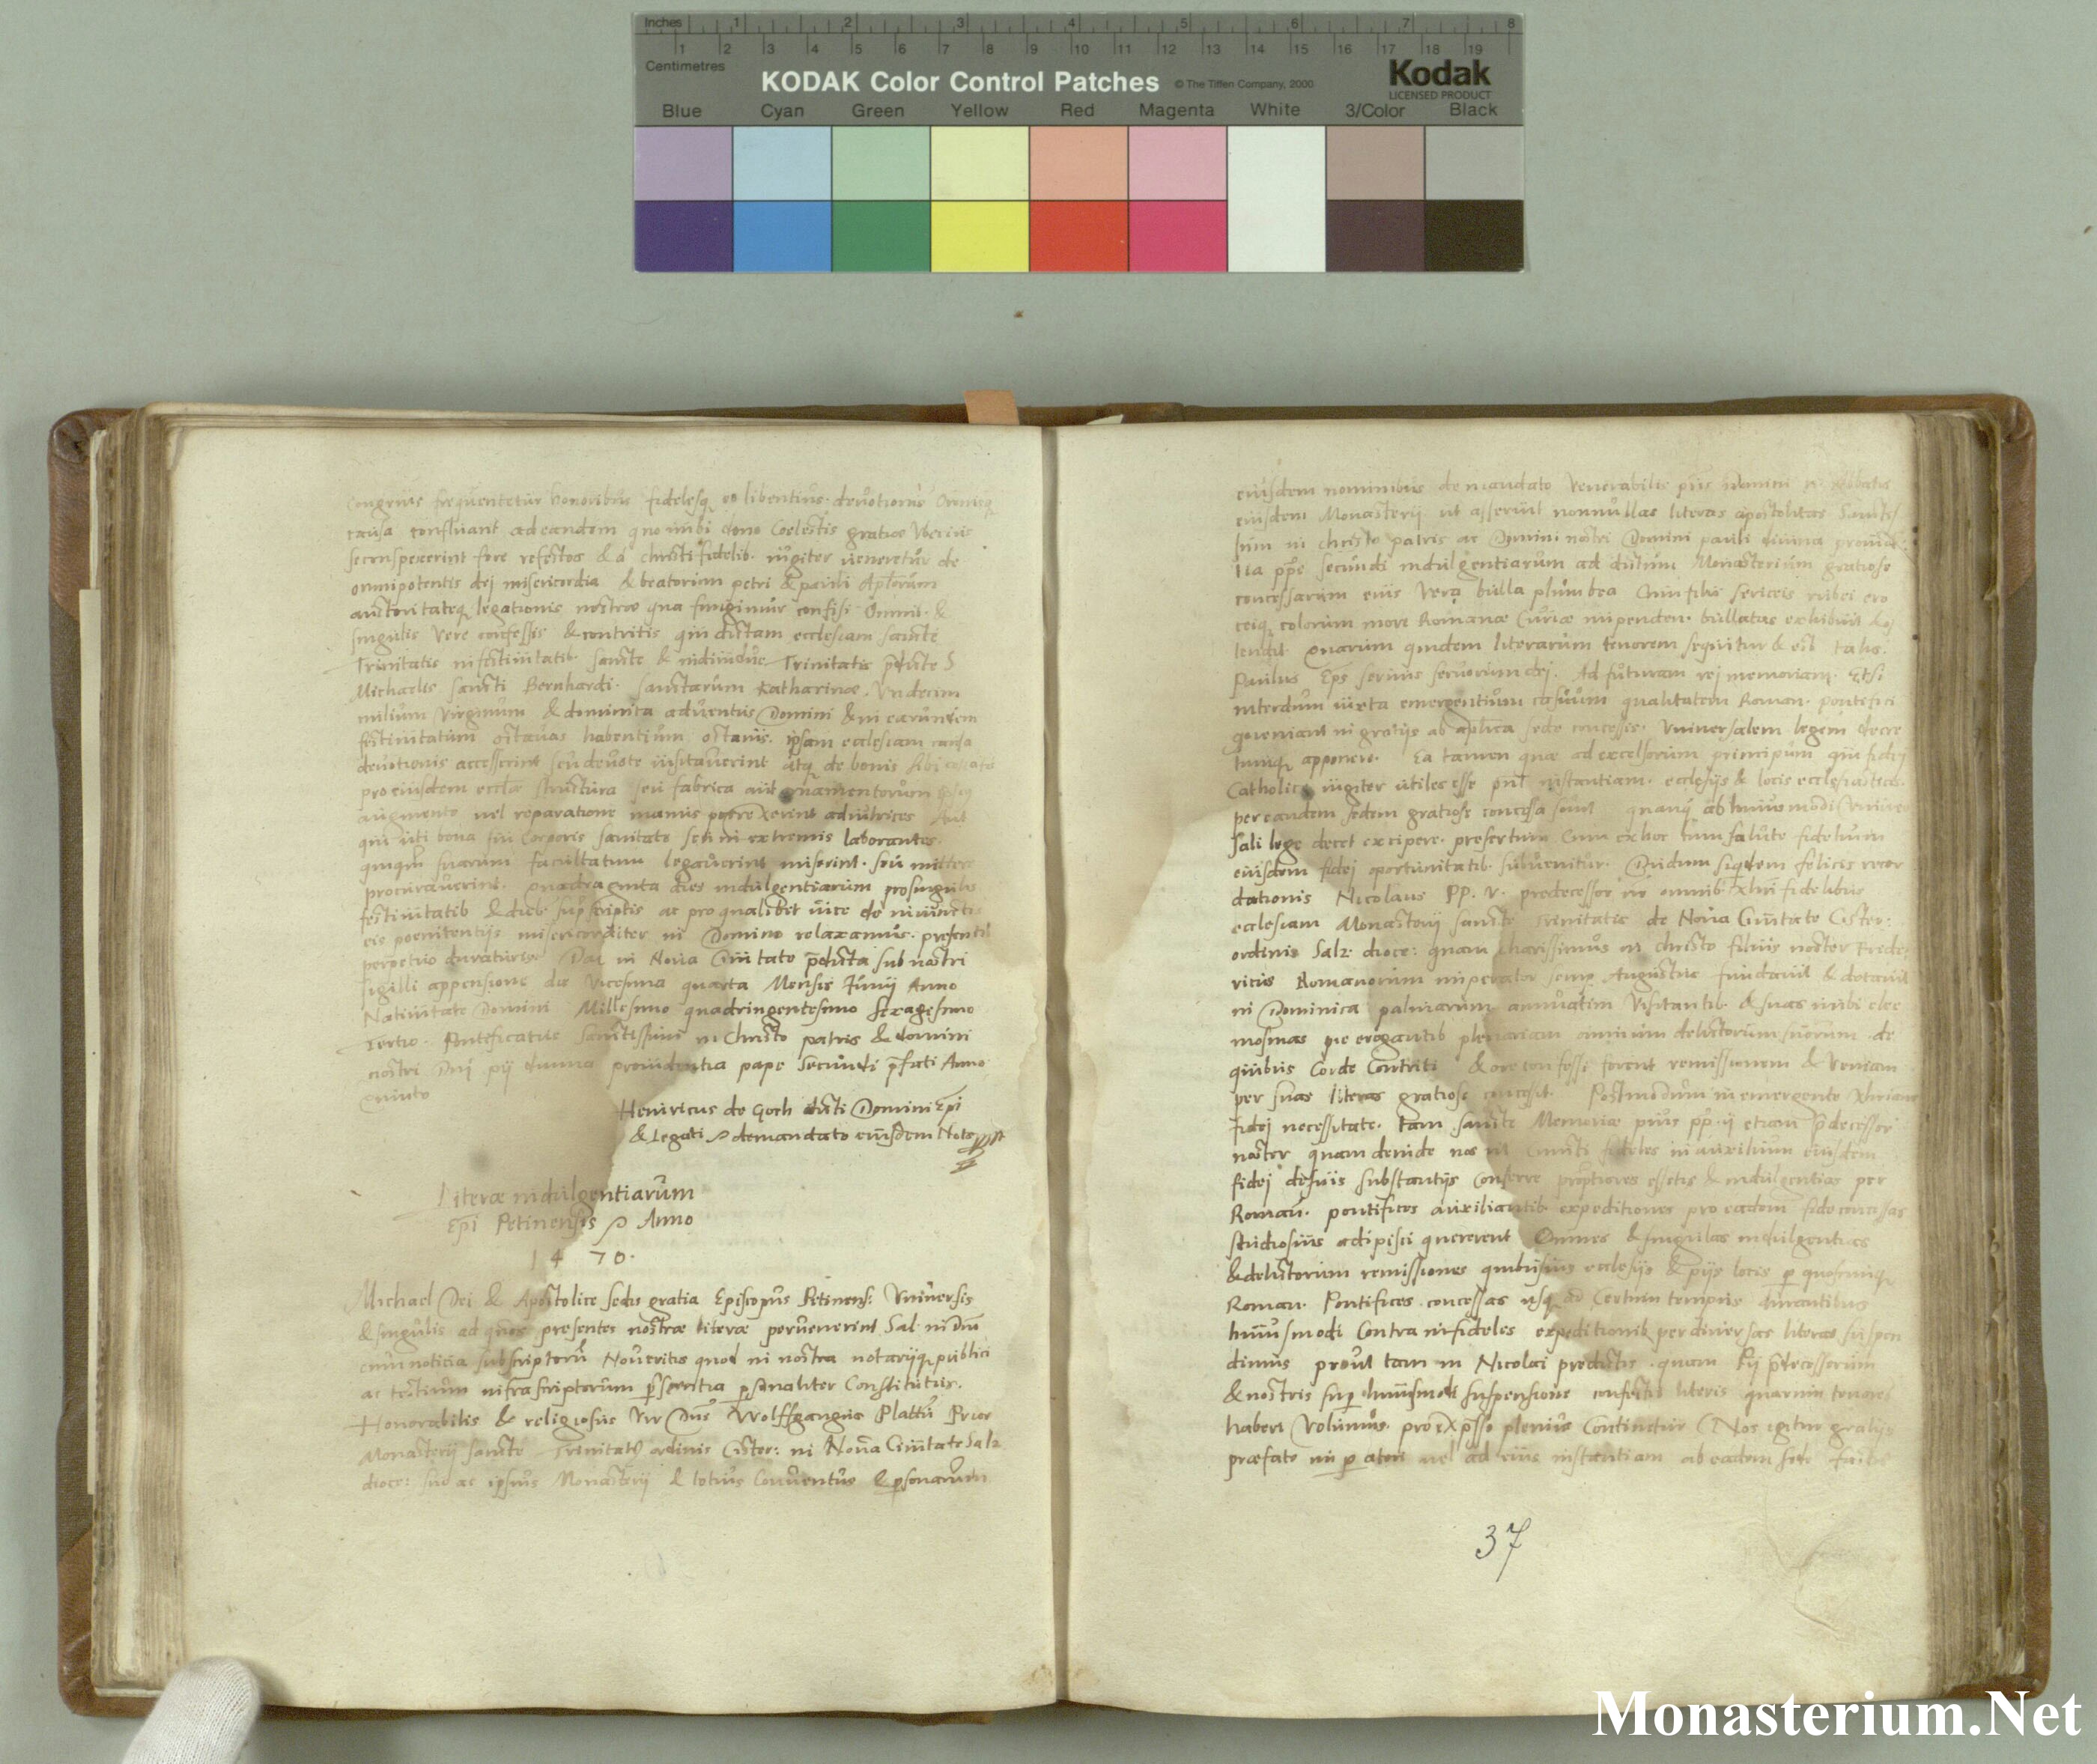 Inches 1 2 3 4 5 6 7 8
1 2 3 4 5 6 7 8 9 10 11 12 13 14 15 16 17 18 19
Centimetres
KODAK Color Control Patches © The Tiffen Company, 2000 Kodak
LICENSED PRODUCT
Blue Cyan Green Yellow Red Magenta White 3/Color Black
congruis frequentetur honoribus fidelesq eo libentius devotionis
causa confluant ad eandem quo inibi dono Coelestis gratiae Uberius
se conspexerint fore refectos & a christifidelib. iugiter veneretur de
omnipotentis dej misericordia & beatorum petri & pauli Aplorum
auctoritateq legationis nostrae qua fungimur confisi Omnib. &
singulis vere confessis & contritis qui dictam ecclesiam sancte
Trinitatis in festivitatib. sancte & individue Trinitatis pdicte S
Michaelis sancti Bernhardi. sanctarum Katharinae. Undecim
milium Virginum & dominica adventus Domini & in earundem
festivitatum octavas habentium octavis. ipsam ecclesiam causa
devotionis accesserint seu devote visitaverint atq de bonis sibi
pro eiusdem ecclae structura seu fabrica aut ornamentorum
augmento vel reparatione manus porrexerint adiutrices Aut
qui uti bona sui Corporis sanitate seu in extremis laborantes.
quiqm suarum facultatum legaverint miserint. seu mittere
procuraverint. quadraginta dies indulgentiarum pro singulis
festivitatib & dieb. supscriptis ac pro qualibet vice de iniunctis
eis poenitentijs misericorditer in Domino relaxamus. presentib
perpetuo duraturis Dat in Nova Civitate pdicta sub nostri
sigilli appensione die Vicesima quarta Mensis Junij Anno
Nativitate Domini Millesimo quadringentesimo Sexagesimo
Tertio. Pontificatus Sanctissimi in Christo patris & domini
nostri Dnj pij divina providentia pape Secundi pfati Anno
Quinto
Heinricus de Goch dicti Domini Epi
& Legati de mandato eiusdem Nota
Literae indulgentiarum
Epi Petinensis Anno
1470.
Michael Dei & Apostolice sedis gratia Episcopus Petinens: Universis
& singulis ad quos presentes nostrae literae pervenerint Sal in Dno
cum noticia subscriptoru Noveritis quod in nostra notarijq publici
ac testium infrascriptorum psentia psonaliter Constitutus.
Honorabilis & religiosus Vir Dns Wolffgangus Plattu Prior
Monasterij sancte Trinitatis ordinis Cister: in Nova Civitate Salz
dioce: suo ac ipsius Monasterij & totius Conventus & psonarum
eiusdem nominibus de mandato Venerabilis pris Domini Abbatis
eiusdem Monasterij ut asseruit nonnullas literas apostolicas Sanctis
sim in christo patris ac Domini nostri Domini pauli divina provid
tia ppe secundi indulgentiarum ad dictum Monasterium gratiose
concessarum eius vera bulla plumbea Cum filis sericeis rubei cro
ceiq colorum more Romanae Curiae impenden. bullatas exhibuit &
tendit quarum quidem literarum tenorem sequitur & est talis.
Paulus Eps servus servorum dej. Ad futuram rej memoriam. Etsi
interdum iuxta emergentium casuum qualitatem Roman. pontifici
queniant in gratijs ab aplica sede concessis. Universalem legem decre
tumq apponere. Ea tamen quae ad excelsorum principum qui fidej
Catholice iugiter utiles esse pnt instantiam. ecclesijs & locis ecclesiasticis.
per eandem sedem gratiose concessa sunt quanq ab huiusmodi Univer
sali lege decet excipere. presertim Cum ex hoc tum saluto fidelium
eiusdem fidej oportunitatib. subvenitur. Dudum siquidem felicis recor
dationis Nicolaus PP. V. predecessor nr omnib Xhri fidelibus
ecclesiam Monasterij sancte Trinitatis de Nova Civitate Cister:
ordinis Salz: dioce: quam charissimus in christo filius noster Fride
ricus Romanorum imperator semp Augustus fundavit & dotavit
in Dominica palmarum annuatim visitantib & suas inibi elee
mosinas pie erogantib plenariam omnium delictorum suorum de
quibus Corde Contriti & ore confessi forent remissionem & Veniam
per suas literas gratiose concessit. Postmodum in emergente Xhriane
fidej necessitate. tam sancte Memoriae pius pp. ij etiam pdecessor
noster quam deinde nos ut cuncti fideles in auxilium eiusdem
fidej de suis substantijs Conferre promptiores essetis & indulgentias per
Roman. pontifices auxiliantib expeditiones pro eadem fide concessas
studiosius adipisci quererent Omnes & singulas indulgentias
& delictorum remissiones quibusvis ecclesijs & pijs locis p quoscunq
Roman. Pontifices concessas usq ad Certum tempus durantibus
huiusmodi Contra infideles expeditionib per diversas literas suspen
dimus prout tam in Nicolai predictis. quam Pij pdecessorum
& nostris sup huiusmodi suspensione confectis literis quarum tenores
haberi Volumus pro expsso plenius Continetur Nos igitur gratijs
praefato imperatori vel ad eius instantiam ab eadem sede
37
Monasterium.Net